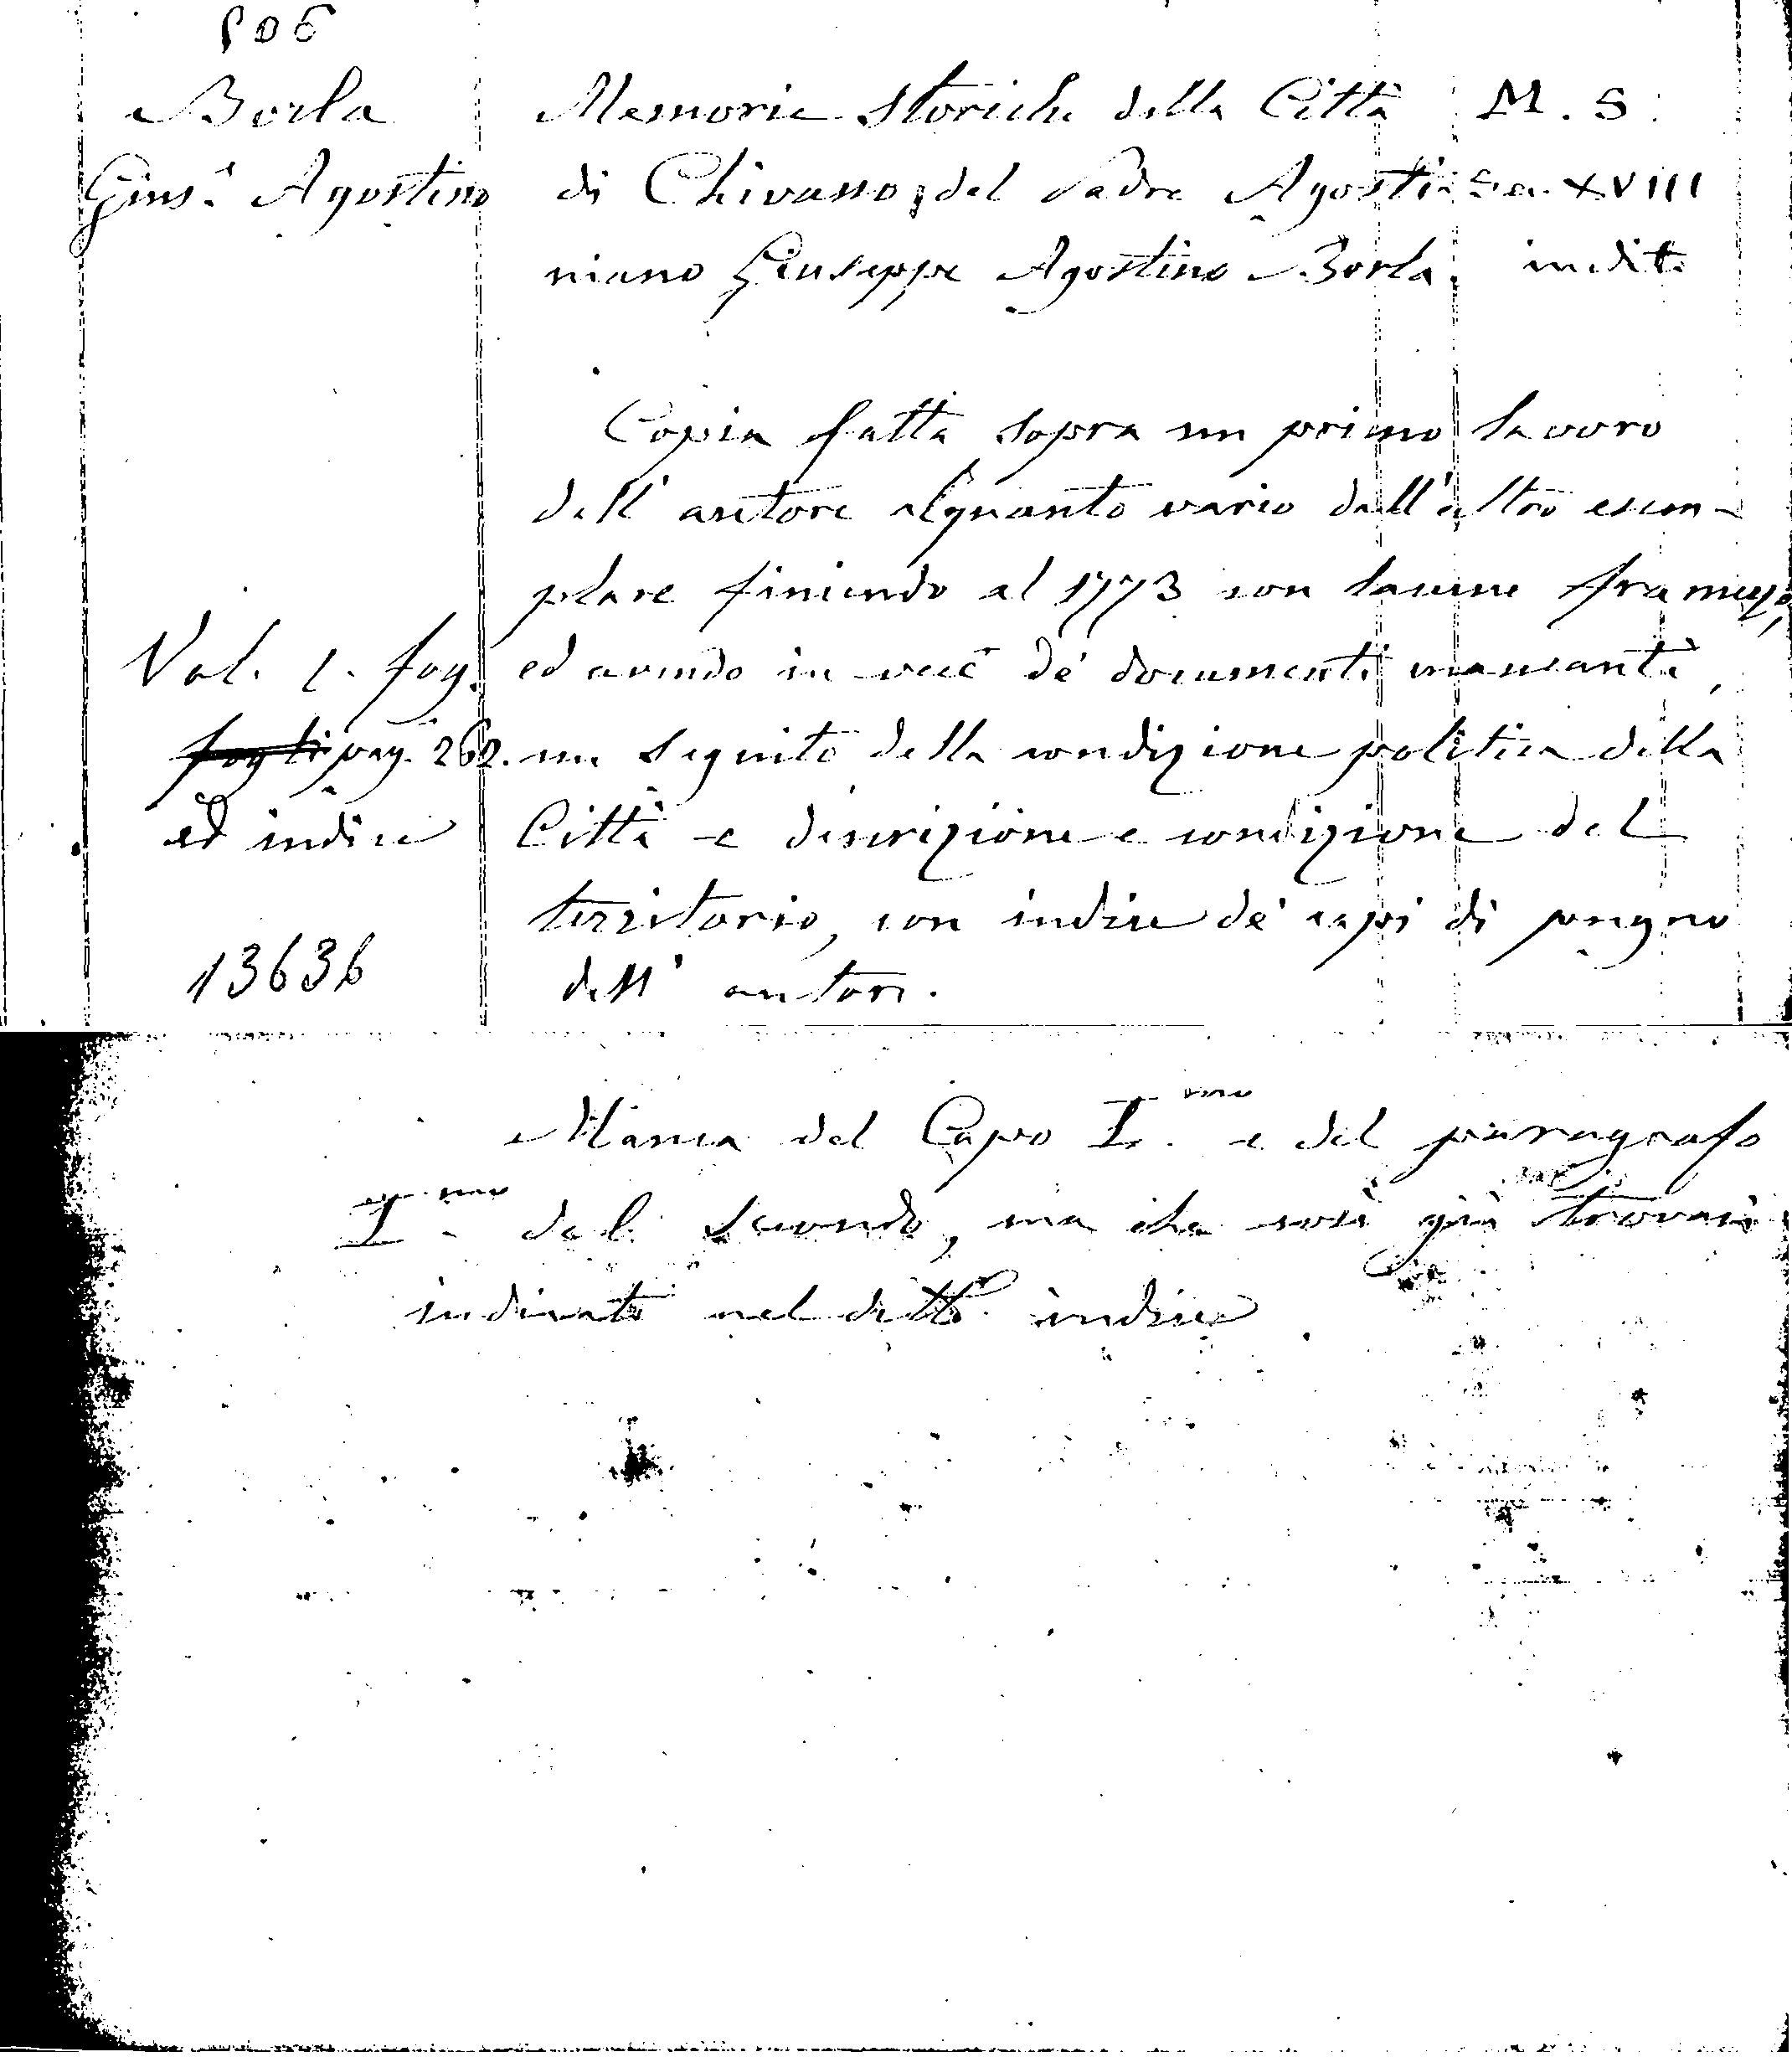 Borla Memorie Storiche della Città M. S.
Gius.e Agostino di Chivasso, del Padre Agosti- Sec. XVIII
niano Giuseppe Agostino Borla. inedito
Copia fatta sopra un primo lavoro
dell'autore alquanto vario dall'altro esem-
plare finiendo al 1773 con lacune framezzo,
Vol. 1. fog. ed avendo in vece de' documenti mancanti,
pag. 262. un seguito della condizione politica della
ed indice Città e descrizione e condizione del
territorio, con indice de' capi di pugno
13636 dell'autore.
Manca del Capo I.mo e del paragrafo
I.mo del secondo, ma che così già trovasi
indicato nel detto indice